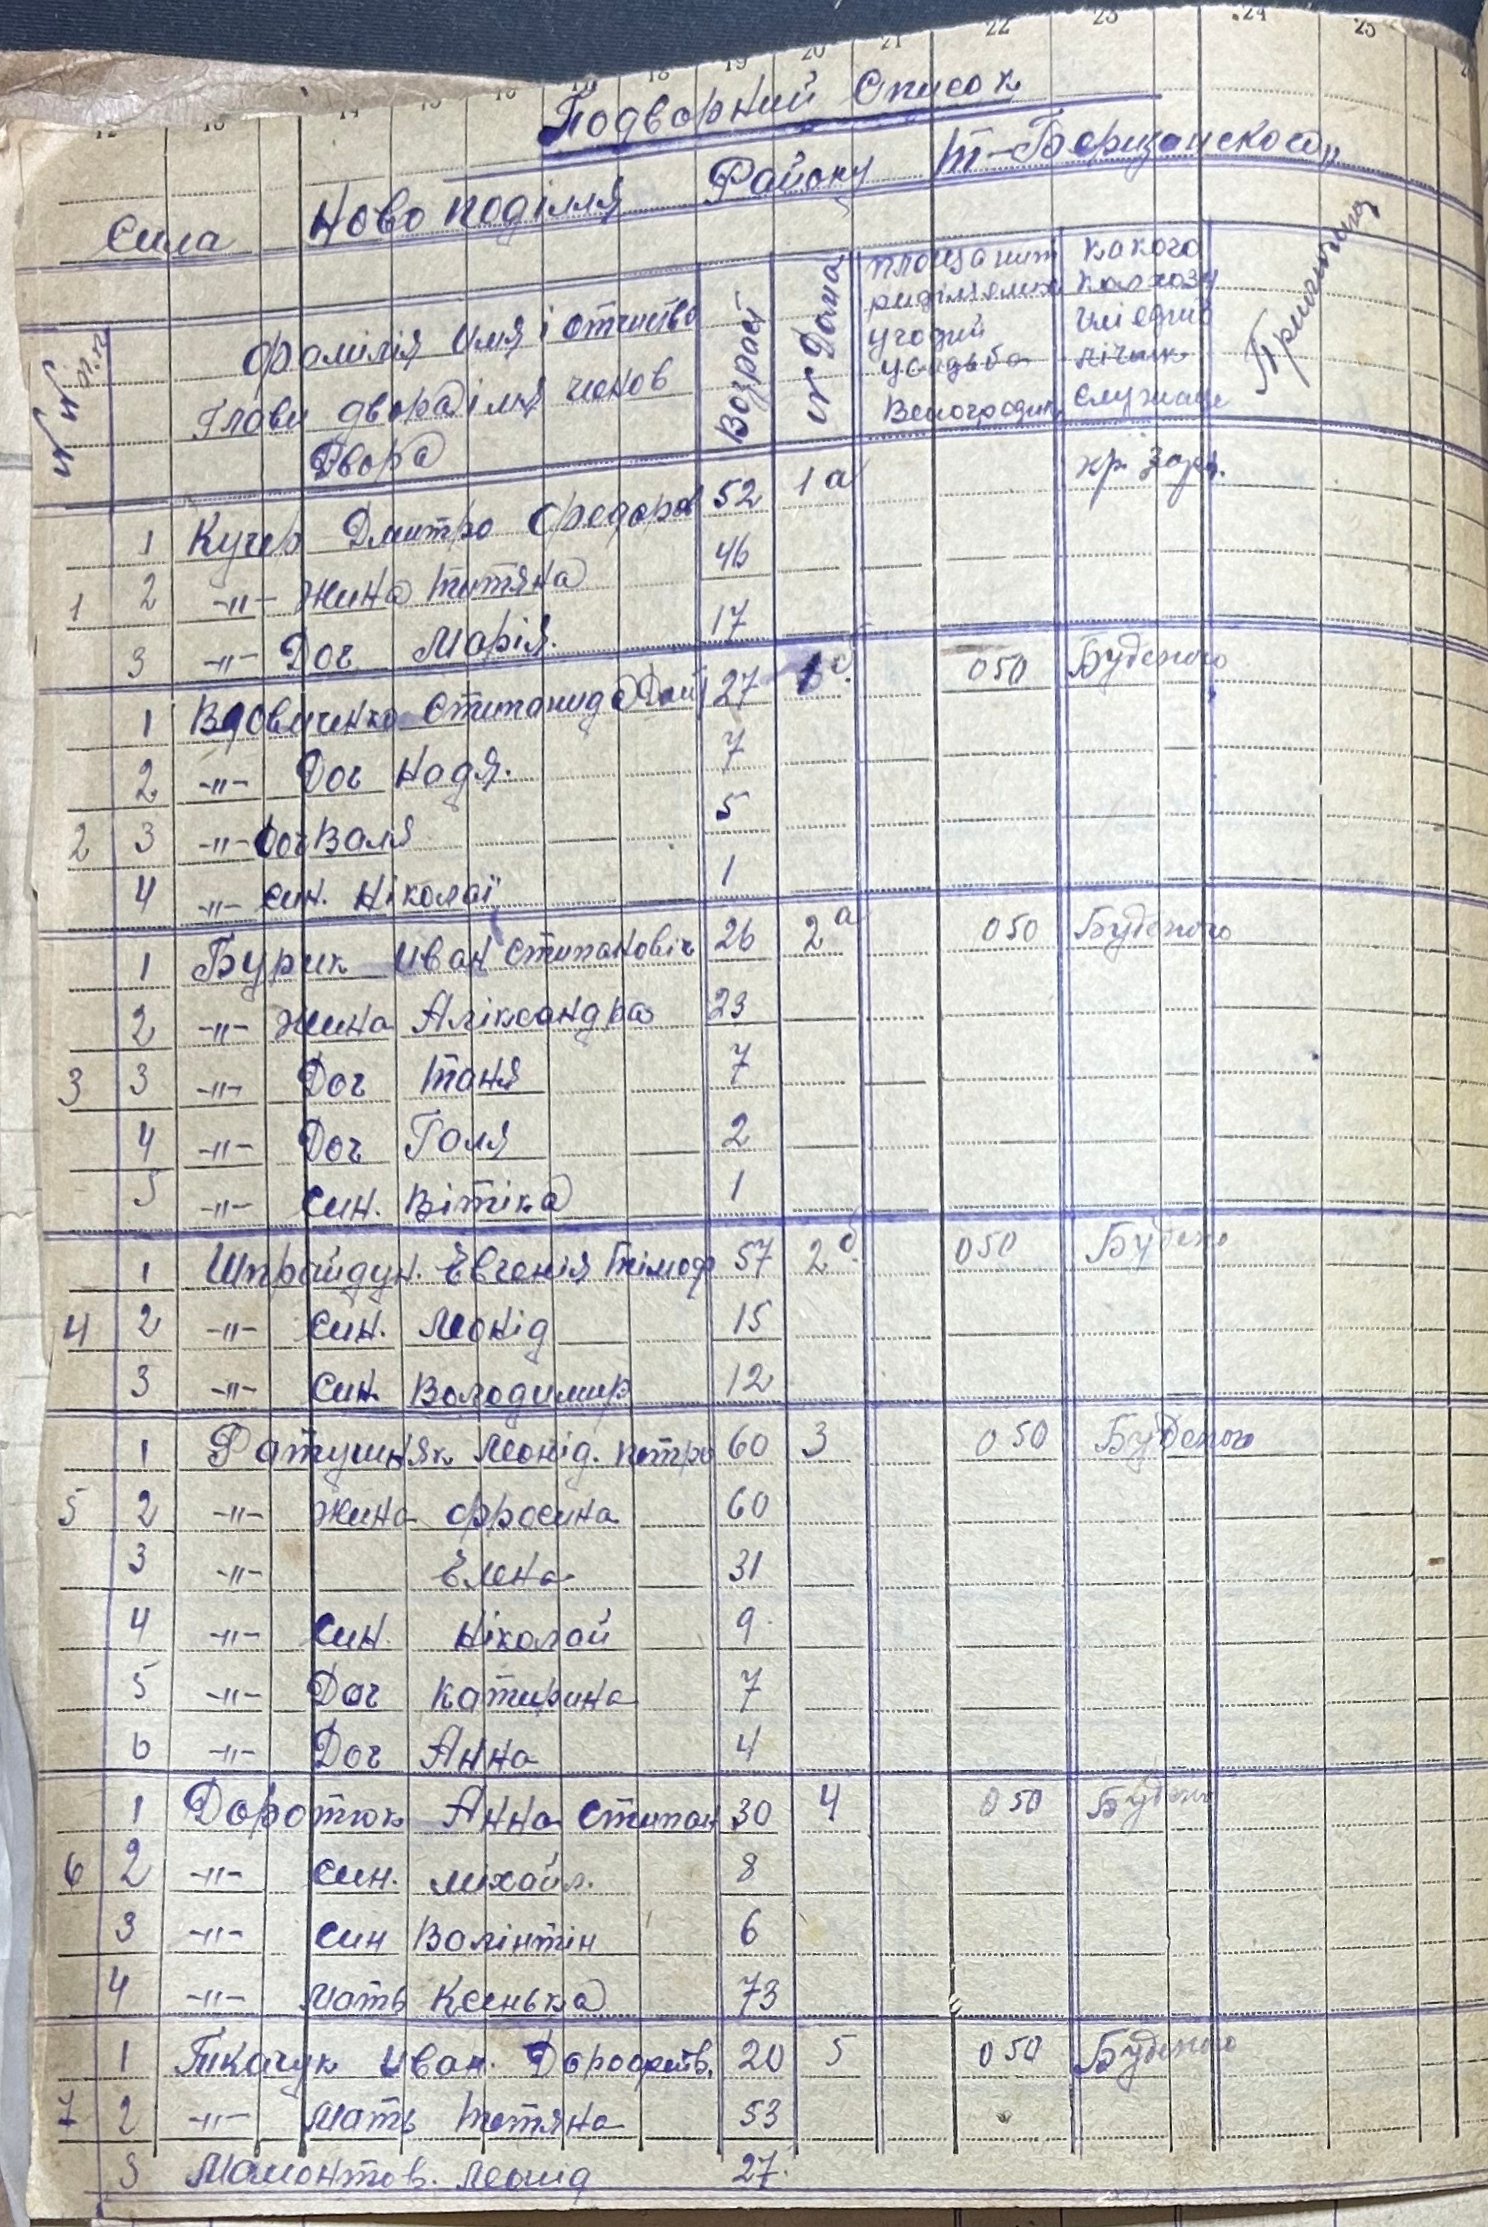 14 15 16 18 19 20 21 22 23 24 25
Подворний Список
Сила Ново поділля Району Т-Березанского
№№ п.п. Фамілія имя і отчиство Глави двора і имя членов Двора Возраст № Дома площа угодий усадьба какого колхозу служащ Примечания
1 Кучер Дмитро Федоров 52 1а
1 2 -"- жина Титяна 46
3 -"- Доч Марія. 17
1 Вдовиченко Стипанида 27 050 Буденого
2 -"- Доч Надя. 7
2 3 -"- Доч Валя 5
4 -"- син. Ніколаї 1
1 Бурик Иван Стипановіч 26 2а 050 Буденого
2 -"- жина Аліксандра 23
3 3 -"- Доч Таня 7
4 -"- Доч Галя 2
5 -"- син. Вітіка 1
1 Шпрайдун. Євгенія Тімоф 57 2б. 050 Будено
4 2 -"- син. Леонід 15
3 -"- син. Володимир 12
1 Ратушняк Леонід. Петро 60 3 050 Буденого
5 2 -"- жина Фросина 60
3 -"- Єлена 31
4 -"- син. Ніколай 9
5 -"- Доч Катирина 7
6 -"- Доч Анна 4
1 Доротюк Анна Стипан 30 4 050 Будено
6 2 -"- син. михайл. 8
3 -"- син Валінтін 6
4 -"- мать Ксенька 73
1 Ткачук Иван. Дорофеїв. 20 5 050 Буденого
7 2 -"- мать Тетяна 53
3 Мамонтов. Леонід 27.